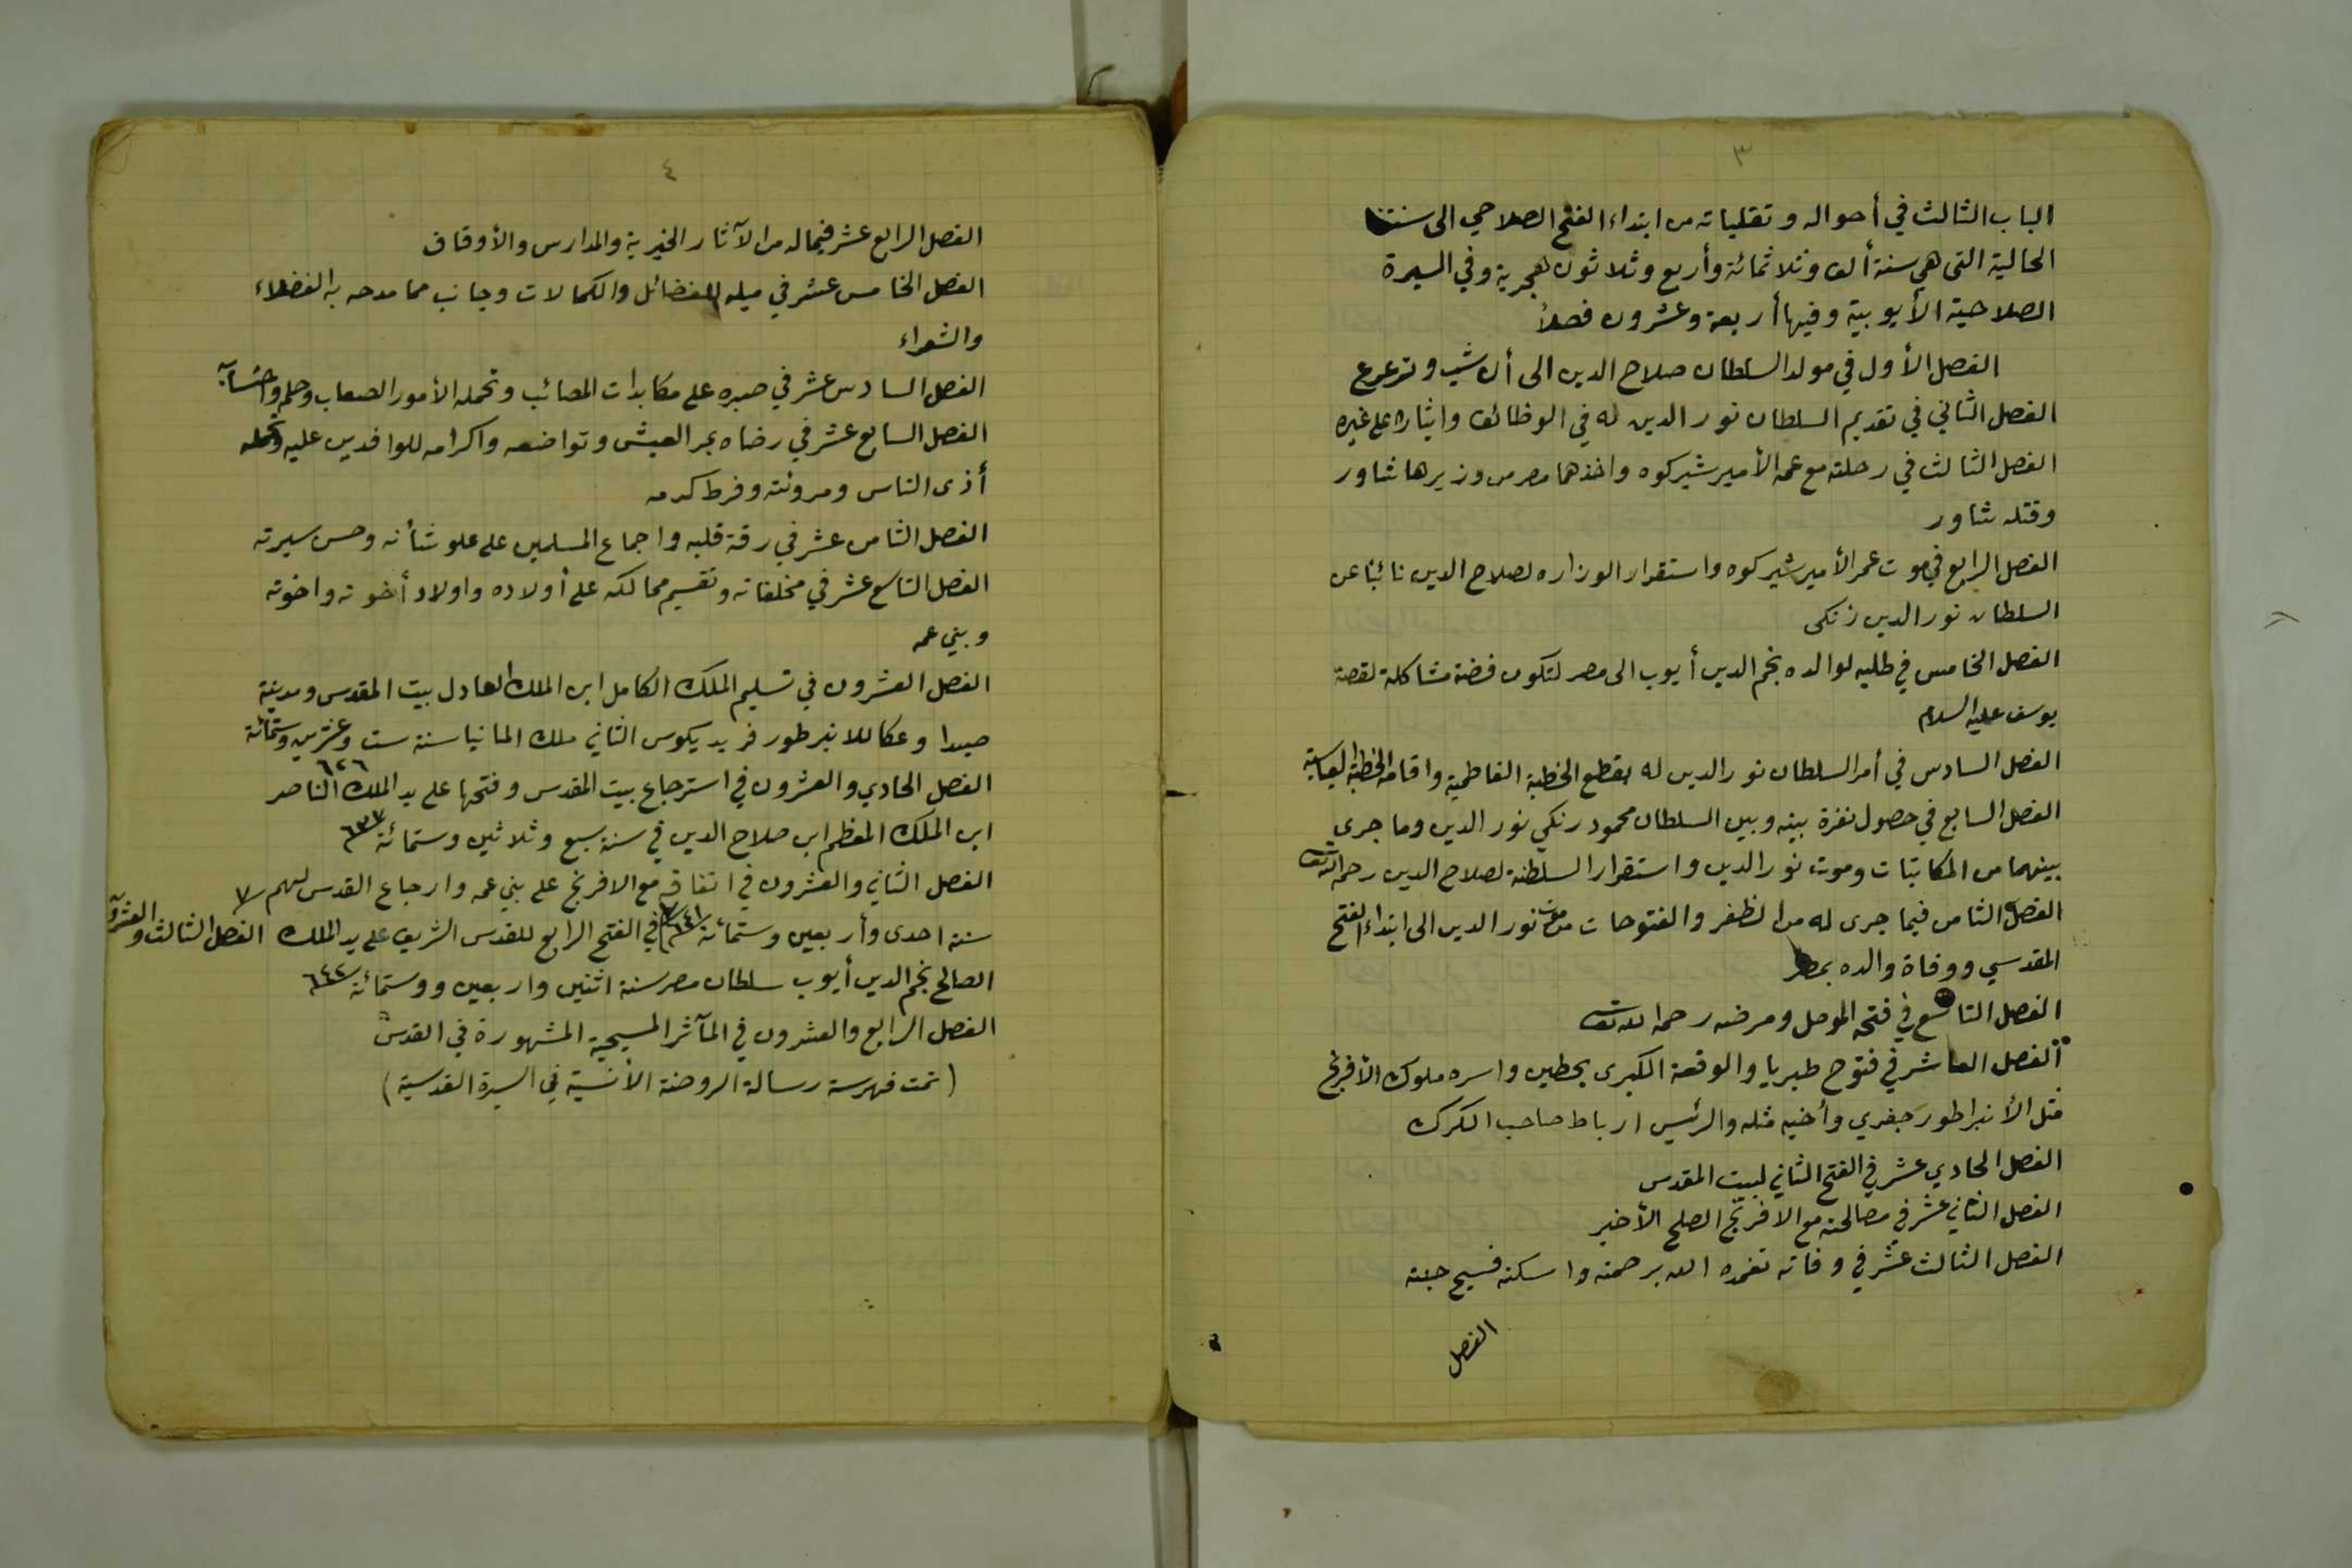 ٣
الباب الثالث في أحواله وتقلباته من ابتداء الفتح الصلاحي الى سنتنا
الحالية التي هي سنة ألف وثلاثمائة وأربع وثلاثون هجرية وفي السيرة
الصلاحية الأيوبية وفيها أربعة وعشرون فصلاً
الفصل الأول في مولد السلطان صلاح الدين الى أن شب وترعرع
الفصل الثاني في تقديم السلطان نور الدين له في الوظائف وايثاره على غيره
الفصل الثالث في رحلته مع عمه الأمير شيركوه واخذهما مصر من وزيرها شاور
وقتله شاور
الفصل الرابع في موت عمه الأمير شيركوه واستقرار الوزاره لصلاح الدين نائبا عن
السلطان نور الدين زنكى
الفصل الخامس في طلبه لوالده نجم الدين أيوب الى مصر لتكون قصته مشاكلة لقصة
يوسف عليه السلام
الفصل السادس في أمر السلطان نور الدين له بقطع الخطبة الفاطمية واقامة الخطبة العباسية
الفصل السابع في حصول نفرة بينه وبين السلطان محمود زنكي نور الدين وما جرى
بينهما من المكاتبات وموت نور الدين واستقرار السلطنة لصلاح الدين رحمه الله تعالى
الفصل الثامن فيما جرى له من الظفر والفتوحات من موت نور الدين الى ابتداء الفتح
المقدسي ووفاة والده بمصر
الفصل التاسع في فتحه الموصل ومرضه رحمه الله تعالى
الفصل العاشر في فتوح طبريا والوقعة الكبرى بحطين واسره ملوك الأفرنج
مثل الأنبراطور جفري وأخيه مثله والرئيس ارباط صاحب الكرك
الفصل الحادي عشر في الفتح الثاني لبيت المقدس
الفصل الثاني عشر في مصالحته مع الافرنج الصلح الأخير
الفصل الثالث عشر في وفاته تغمده الله برحمته واسكنه فسيح جنته
الفصل
٤
الفصل الرابع عشر فيما له من الآثار الخيرية والمدارس والأوقاف
الفصل الخامس عشر في ميله للفضائل والكمالات وجانب مما مدحه به الفضلاء
والشعراء
الفصل السادس عشر في صبره على مكابدات المصائب وتحمله الأمور الصعاب وحلمه واحتسابه
الفصل السابع عشر في رضاه بمر العيش وتواضعه واكرامه للوافدين عليه وتحمله
أذى الناس ومروئته وفرط كرمه
الفصل الثامن عشر في رقة قلبه واجماع المسلمين على علو شأنه وحسن سيرته
الفصل التاسع عشر في مخلفاته وتقسيم ممالكه على أولاده واولاد أخوته واخوته
وبني عمه
الفصل العشرون في تسليم الملك الكامل ابن الملك العادل بيت المقدس ومدينة
صيدا وعكا للانبرطور فريديكوس الثاني ملك المانيا سنة ست وعشرين وستمائة
٦٢٦
الفصل الحادي والعشرون في استرجاع بيت المقدس وفتحها على يد الملك الناصر
ابن الملك المعظم ابن صلاح الدين في سنة سبع وثلاثين وستمائة ٦٣٧
الفصل الثاني والعشرون في اتفاقه مع الافرنج على بني عمه وارجاع القدس لهم ٧
سنة احدى وأربعين وستمائة ٦٤١ الفصل الثالث والعشرون في الفتح الرابع للقدس الشريف على يد الملك
الصالح نجم الدين أيوب سلطان مصر سنة اثنين واربعين ووستمائة ٦٤٢
الفصل الرابع والعشرون في المآثر المسيحية المشهورة في القدس
(تمت فهرسة رسالة الروضة الأنسية في السيرة القدسية)